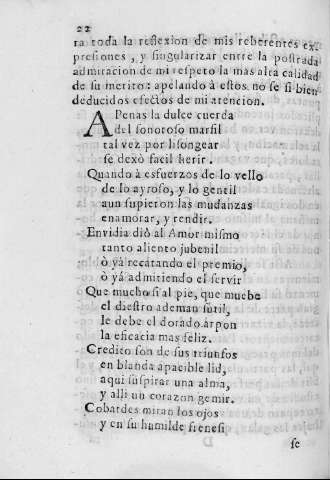 22
ra toda la reflexion de mis reberentes ex-
presiones, y singularizar entre la postrada
admiracion de mi respeto la mas alta calidad
de su merito: apelando à estos no se si bien
deducidos efectos de mi atencion.
APenas la dulce cuerda
del sonoroso marfil
tal vez por lisongear
se dexò facil herir.
Quando à esfuerzos de lo vello
de lo ayroso, y lo gentil
aun supieron las mudanzas
enamorar, y rendir.
Envidia diò al Amor mismo
tanto aliento jubenil
ò yà recatando el premio,
ò yá admitiendo el servir
Que mucho si al pie, que muebe
el diestro ademan sutil,
le debe el dorado arpon
la eficacia mas feliz.
Credito son de sus triunfos
en blanda apacible lid,
aqui suspirar una alma,
y alli un corazon gemir.
Cobardes miran los ojos
y en su humilde frenesi
se